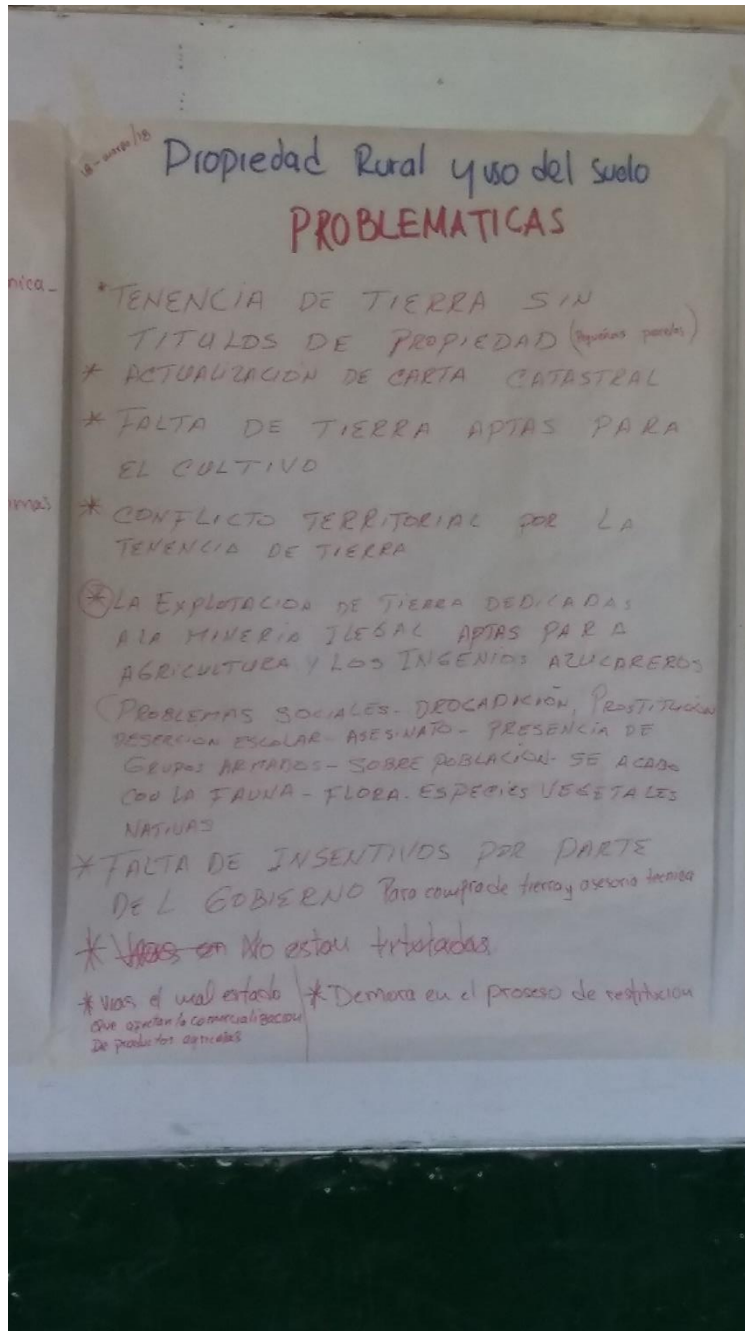 nica-
mas
18-marzo/18
Propiedad Rural y uso del suelo
PROBLEMATICAS
* TENENCIA DE TIERRA SIN
TITULOS DE PROPIEDAD (Pequeñas parcelas)
* ACTUALIZACIÓN DE CARTA CATASTRAL
* FALTA DE TIERRA APTAS PARA
EL CULTIVO
* CONFLICTO TERRITORIAL POR LA
TENENCIA DE TIERRA
* LA EXPLOTACION DE TIERRA DEDICADAS
A LA MINERIA ILEGAL APTAS PARA
AGRICULTURA Y LOS INGENIOS AZUCAREROS
(PROBLEMAS SOCIALES- DROGADICIÓN, PROSTITUCIÓN
DESERCION ESCOLAR- ASESINATO- PRESENCIA DE
GRUPOS ARMADOS- SOBRE POBLACIÓN- SE ACABO
CON LA FAUNA- FLORA. ESPECIES VEGETALES
NATIVAS
* FALTA DE INSENTIVOS POR PARTE
DEL GOBIERNO Para compra de tierra y asesoria tecnica
* No estan
* vias el mal estado
Que afectan la comercializacion
De productos agricolas
* Demora en el proseso de restitucion